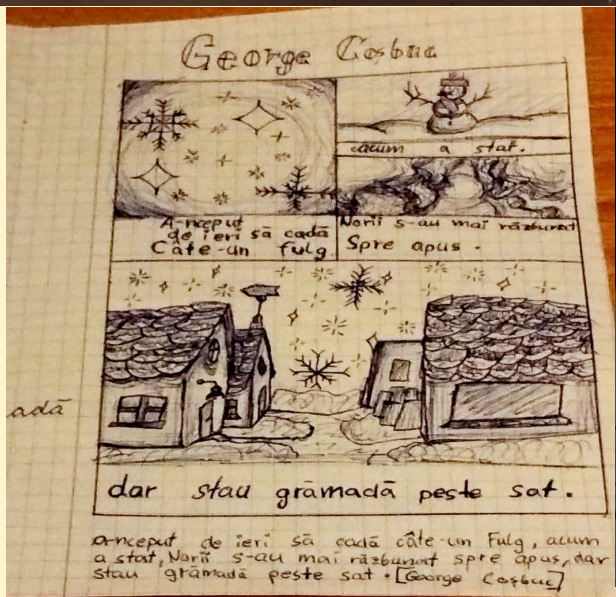 George Coșbuc
A-nceput
de ieri să cadă
Câte-un fulg
acum a stat.
Norii s-au mai răzbunat
Spre apus.
adă
dar stau grămadă peste sat.
A-nceput de ieri să cadă câte-un Fulg, acum
a stat, Norii s-au mai răzbunat spre apus, dar
stau grămadă peste sat. [George Coșbuc]